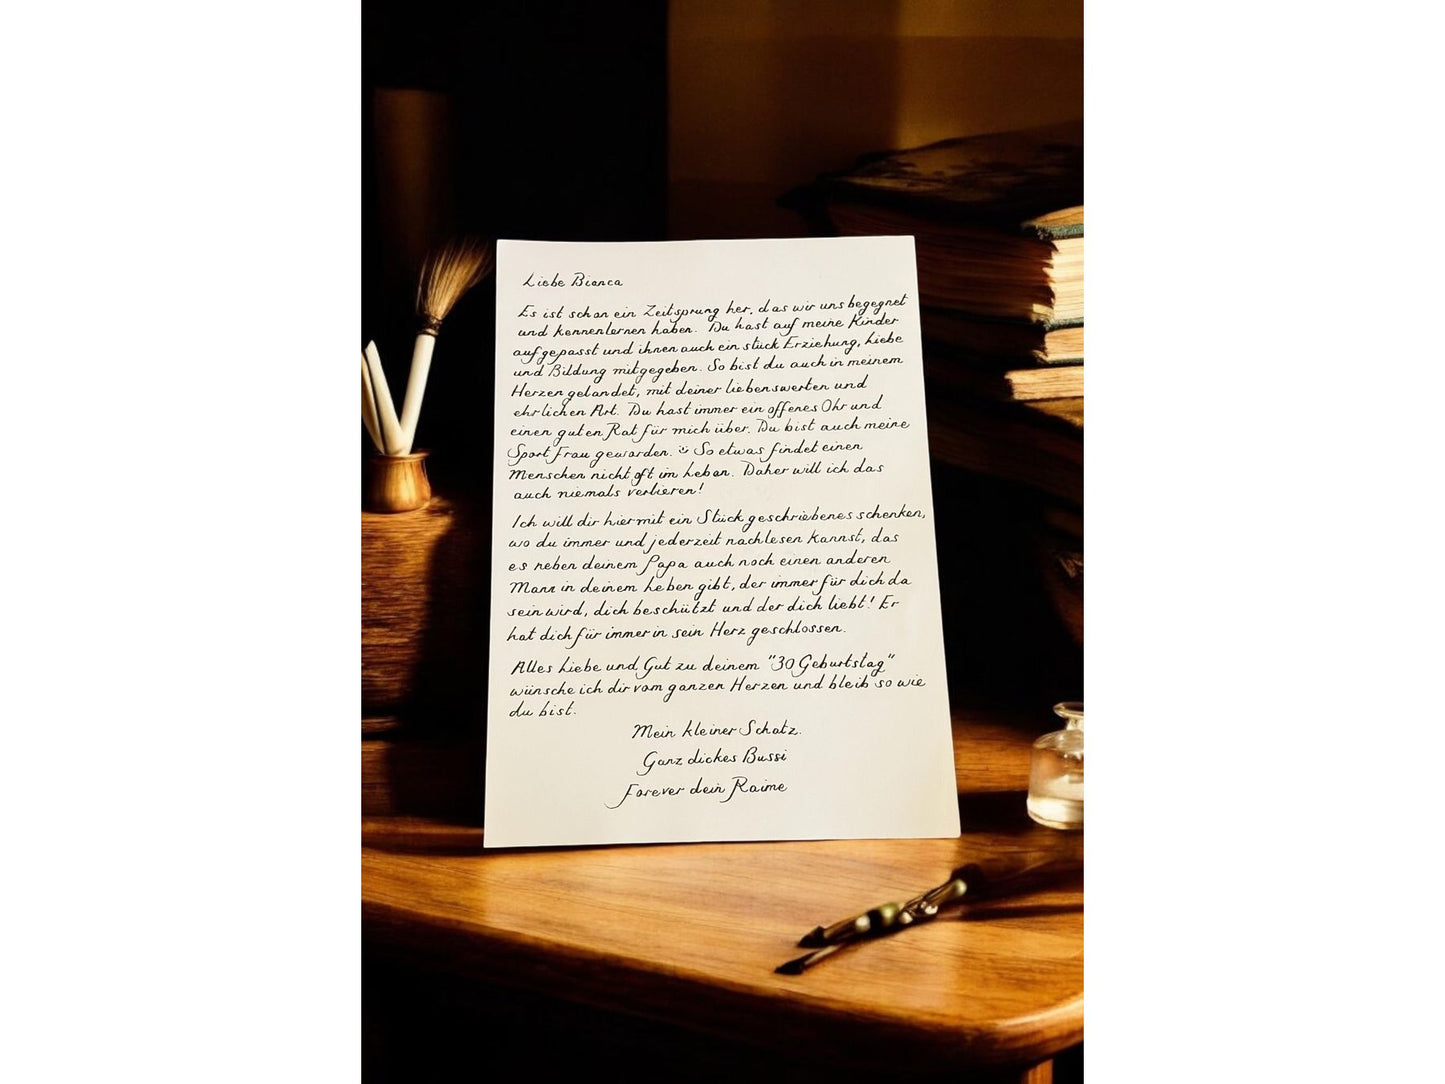 Liebe Bianca
Es ist schon ein Zeitsprung her, das wir uns begegnet
und kennenlernen haben. Du hast auf meine Kinder
aufgepasst und ihnen auch ein stück Erziehung, Liebe
und Bildung mitgegeben. So bist du auch in meinem
Herzen gelandet, mit deiner liebenswerten und
ehrlichen Art. Du hast immer ein offenes Ohr und
einen guten Rat für mich über. Du bist auch meine
Sport Frau geworden. So etwas findet einen
Menschen nicht oft im Leben. Daher will ich das
auch niemals verlieren!
Ich will dir hiermit ein Stück geschriebenes schenken,
wo du immer und jederzeit nachlesen kannst, das
es neben deinem Papa auch noch einen anderen
Mann in deinem Leben gibt, der immer für dich da
sein wird, dich beschützt und der dich liebt! Er
hat dich für immer in sein Herz geschlossen.
Alles Liebe und Gut zu deinem "30 Geburtstag"
wünsche ich dir vom ganzen Herzen und bleib so wie
du bist.
Mein kleiner Schatz.
Ganz dickes Bussi
Forever dein Raime